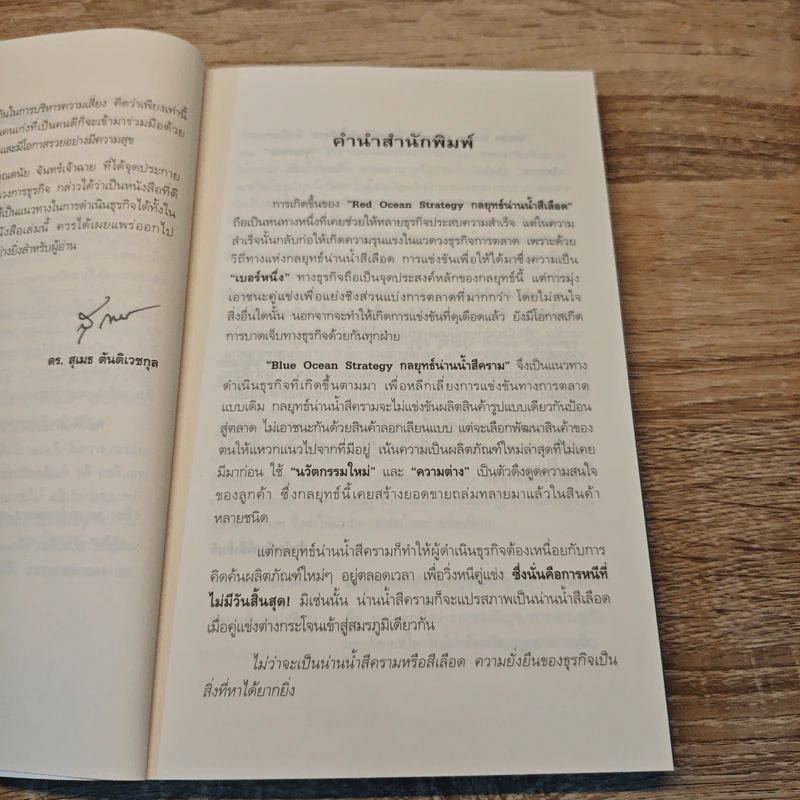 ันในการบริหารความเสี่ยง คิดว่าเพียงเท่านี้
คนเก่งที่เป็นคนดีก็จะเข้ามาร่วมมือด้วย
และมีโอกาสรวยอย่างมีความสุข
ุณดนัย จันทร์เจ้าฉาย ที่ได้จุดประกาย
วงการธุรกิจ กล่าวได้ว่าเป็นหนังสือที่ดี
ใช้เป็นแนวทางในการดำเนินธุรกิจได้ทั้งใน
นังสือเล่มนี้ ควรได้เผยแพร่ออกไป
ย่างยิ่งสำหรับผู้อ่าน
ดร. สุเมธ ตันติเวชกุล
คำนำสำนักพิมพ์
การเกิดขึ้นของ "Red Ocean Strategy กลยุทธ์น่านน้ำสีเลือด"
ถือเป็นหนทางหนึ่งที่เคยช่วยให้หลายธุรกิจประสบความสำเร็จ แต่ในความ
สำเร็จนั้นกลับก่อให้เกิดความรุนแรงในแวดวงธุรกิจการตลาด เพราะด้วย
วิถีทางแห่งกลยุทธ์น่านน้ำสีเลือด การแข่งขันเพื่อให้ได้มาซึ่งความเป็น
"เบอร์หนึ่ง" ทางธุรกิจถือเป็นจุดประสงค์หลักของกลยุทธ์นี้ แต่การมุ่ง
เอาชนะคู่แข่งเพื่อแย่งชิงส่วนแบ่งการตลาดที่มากกว่า โดยไม่สนใจ
สิ่งอื่นใดนั้น นอกจากจะทำให้เกิดการแข่งขันที่ดุเดือดแล้ว ยังมีโอกาสเกิด
การบาดเจ็บทางธุรกิจด้วยกันทุกฝ่าย
"Blue Ocean Strategy กลยุทธ์น่านน้ำสีคราม" จึงเป็นแนวทาง
ดำเนินธุรกิจที่เกิดขึ้นตามมา เพื่อหลีกเลี่ยงการแข่งขันทางการตลาด
แบบเดิม กลยุทธ์น่านน้ำสีครามจะไม่แข่งขันผลิตสินค้ารูปแบบเดียวกันป้อน
สู่ตลาด ไม่เอาชนะกันด้วยสินค้าลอกเลียนแบบ แต่จะเลือกพัฒนาสินค้าของ
ตนให้แหวกแนวไปจากที่มีอยู่ เน้นความเป็นผลิตภัณฑ์ใหม่ล่าสุดที่ไม่เคย
มีมาก่อน ใช้ "นวัตกรรมใหม่" และ "ความต่าง" เป็นตัวดึงดูดความสนใจ
ของลูกค้า ซึ่งกลยุทธ์นี้เคยสร้างยอดขายถล่มทลายมาแล้วในสินค้า
หลายชนิด
แต่กลยุทธ์น่านน้ำสีครามก็ทำให้ผู้ดำเนินธุรกิจต้องเหนื่อยกับการ
คิดค้นผลิตภัณฑ์ใหม่ๆ อยู่ตลอดเวลา เพื่อวิ่งหนีคู่แข่ง ซึ่งนั่นคือการหนีที่
ไม่มีวันสิ้นสุด! มิเช่นนั้น น่านน้ำสีครามก็จะแปรสภาพเป็นน่านน้ำสีเลือด
เมื่อคู่แข่งต่างกระโจนเข้าสู่สมรภูมิเดียวกัน
ไม่ว่าจะเป็นน่านน้ำสีครามหรือสีเลือด ความยั่งยืนของธุรกิจเป็น
สิ่งที่หาได้ยากยิ่ง